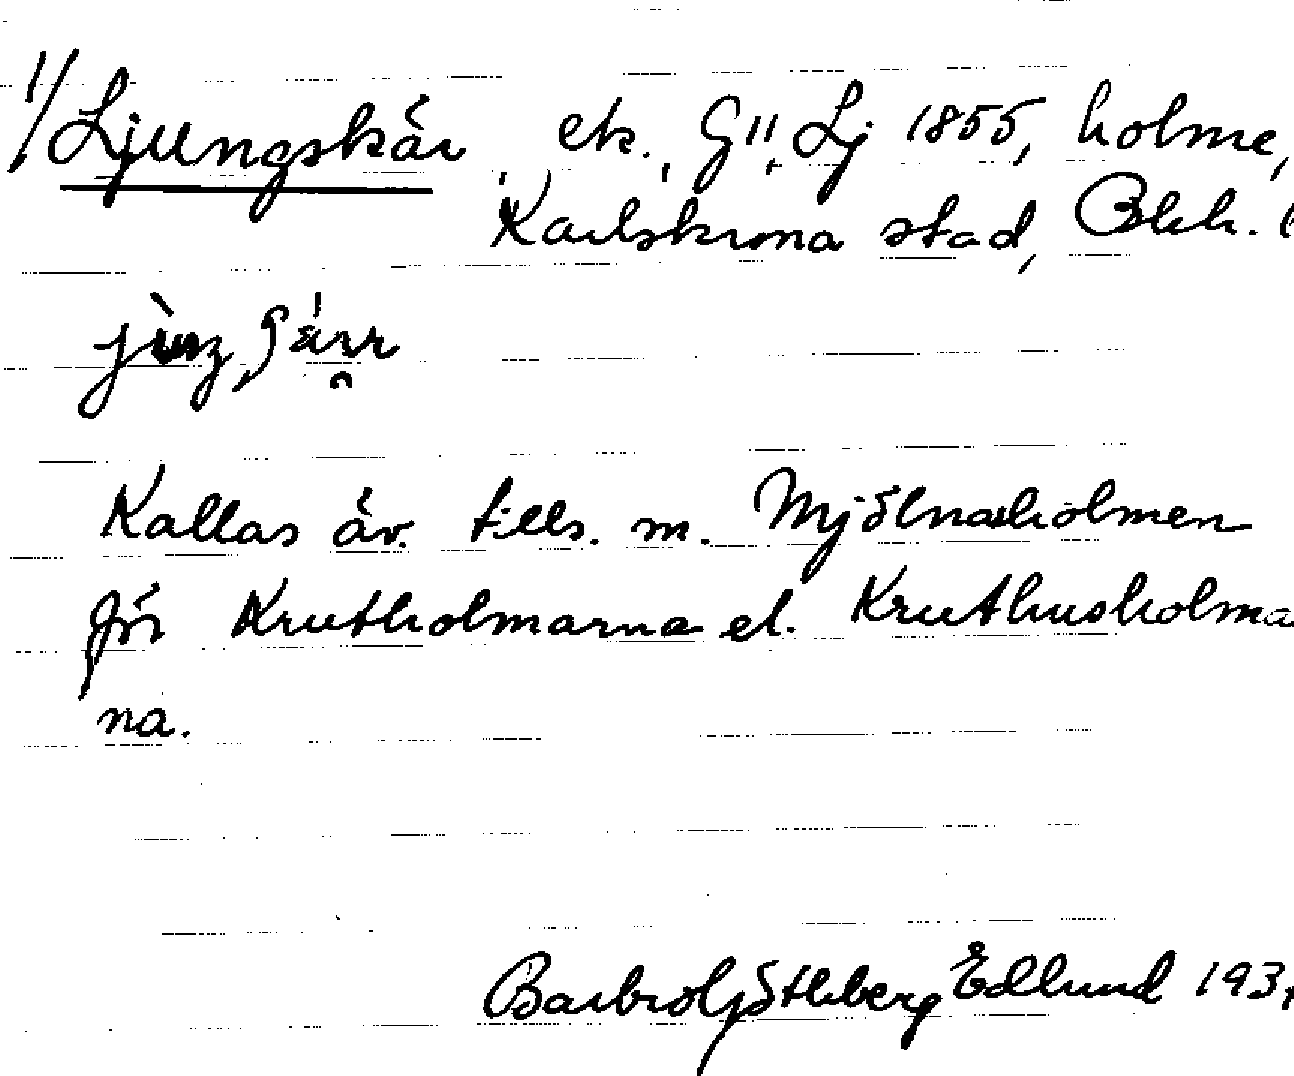 1/ Ljungskär ek., G11, Lj 1855, holme,
Karlskrona stad, Blek.
Kallas äv. tills. m. Mjölnarholmen
för Krutholmarna el. Kruthusholma
na.
Barbro Götherberg Edlund 193